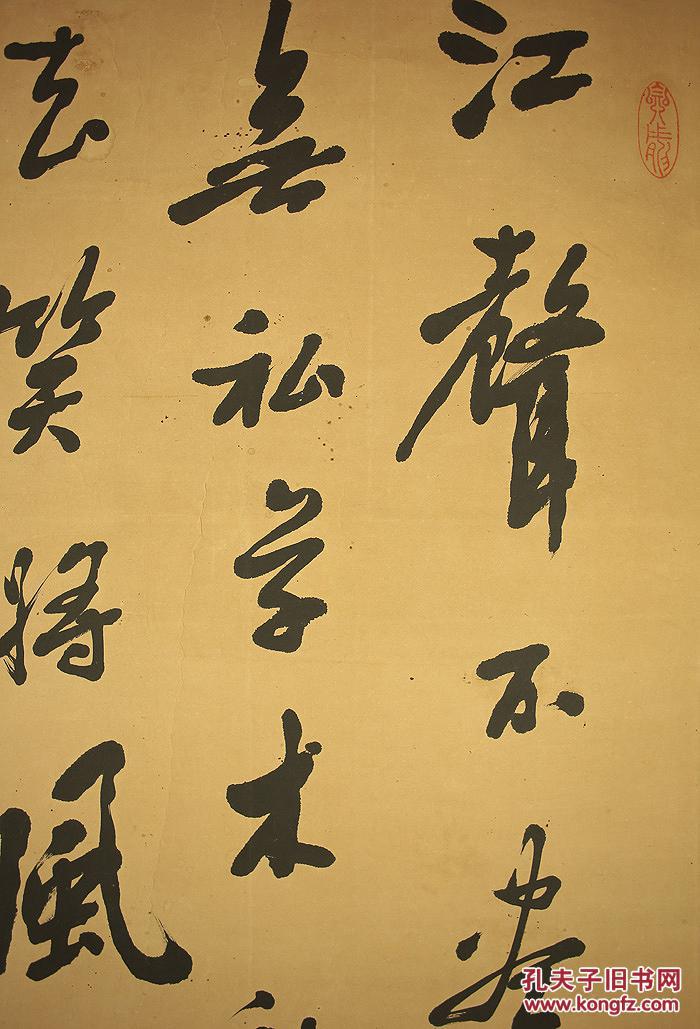 江聲不盡
無私草木
去笑將風
孔夫子旧书网
www.kongfz.com